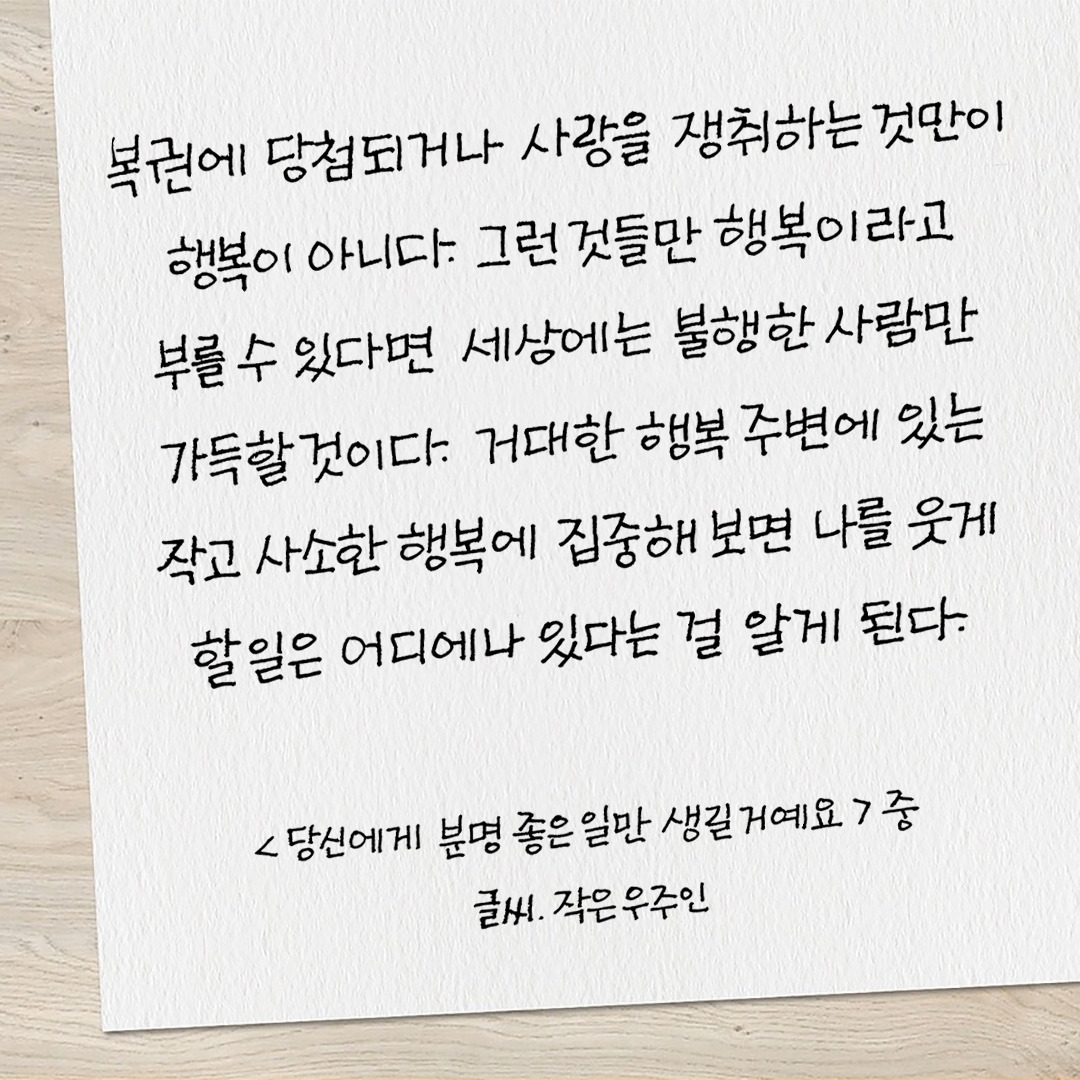 복권에 당첨되거나 사랑을 쟁취하는 것만이
행복이 아니다. 그런 것들만 행복이라고
부를 수 있다면 세상에는 불행한 사람만
가득할 것이다. 거대한 행복 주변에 있는
작고 사소한 행복에 집중해 보면 나를 웃게
할 일은 어디에나 있다는 걸 알게 된다.
<당신에게 분명 좋은 일만 생길거예요> 중
글씨. 작은우주인